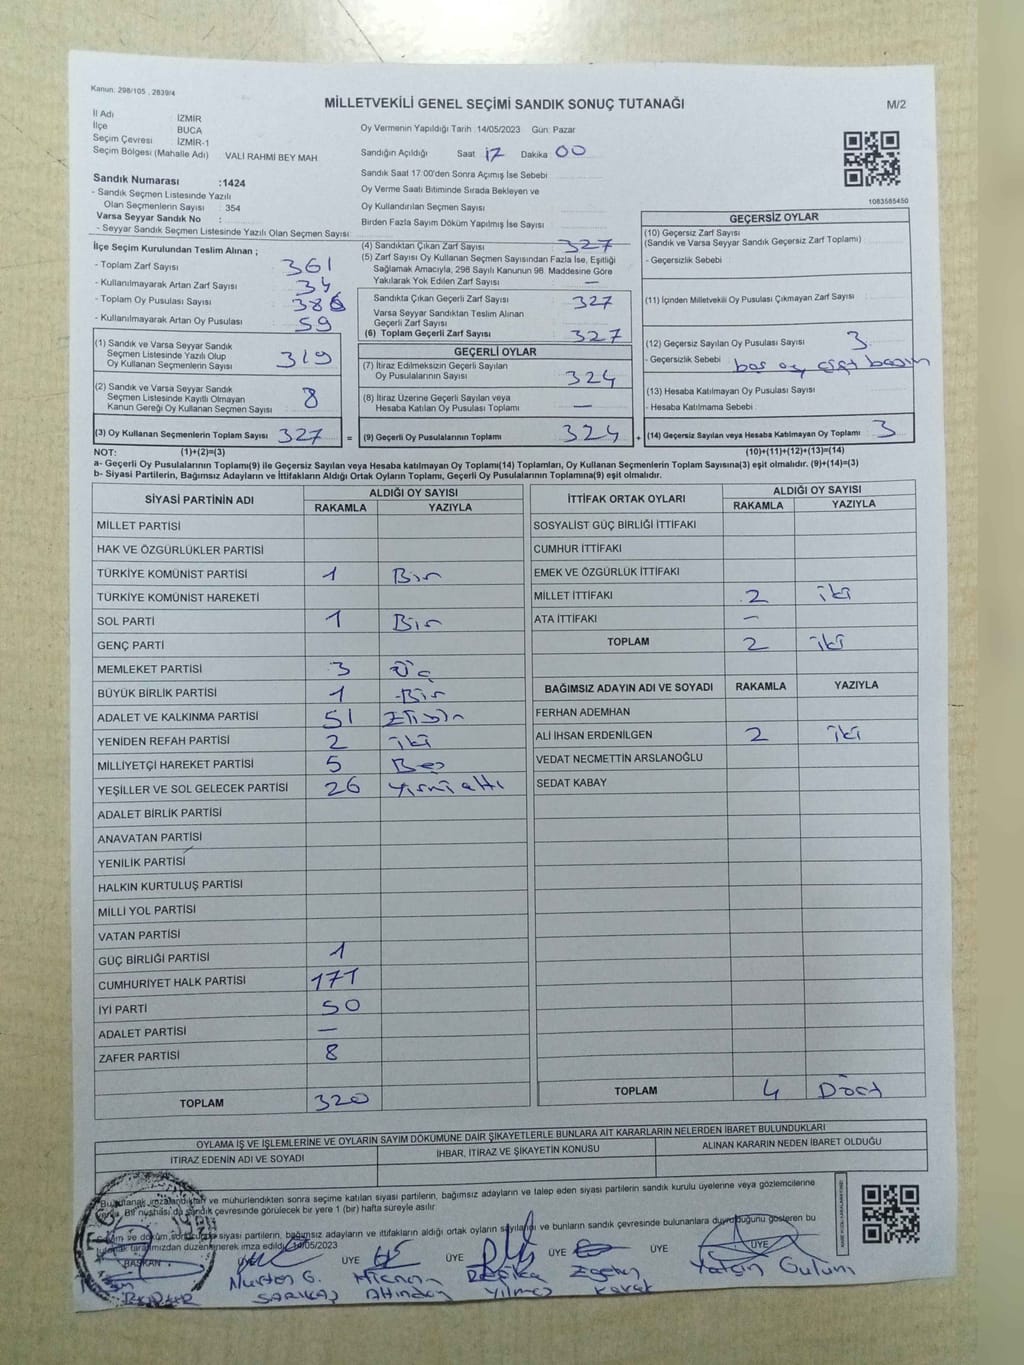 Kanun: 298/105 , 2839/4
MİLLETVEKİLİ GENEL SEÇİMİ SANDIK SONUÇ TUTANAĞI
M/2
İl Adı : İZMİR
İlçe BUCA
Seçim Çevresi : İZMİR-1
Seçim Bölgesi (Mahalle Adı) VALİ RAHMİ BEY MAH
Sandık Numarası :1424
- Sandık Seçmen Listesinde Yazılı
Olan Seçmenlerin Sayısı : 354
Varsa Seyyar Sandık No :
- Seyyar Sandık Seçmen Listesinde Yazılı Olan Seçmen Sayısı:
Oy Vermenin Yapıldığı Tarih :14/05/2023 Gün: Pazar
Sandığın Açıldığı Saat 17 Dakika 00
Sandık Saat 17:00'den Sonra Açımış İse Sebebi
Oy Verme Saati Bitiminde Sırada Bekleyen ve
Oy Kullandırılan Seçmen Sayısı
Birden Fazla Sayım Döküm Yapılmış İse Sayısı
1083585450
İlçe Seçim Kurulundan Teslim Alınan ;
- Toplam Zarf Sayısı 361
- Kullanılmayarak Artan Zarf Sayısı 34
- Toplam Oy Pusulası Sayısı 386
- Kullanılmayarak Artan Oy Pusulası 59
(1) Sandık ve Varsa Seyyar Sandık
Seçmen Listesinde Yazılı Olup
Oy Kullanan Seçmenlerin Sayısı 319
(2) Sandık ve Varsa Seyyar Sandık
Seçmen Listesinde Kayıtlı Olmayan
Kanun Gereği Oy Kullanan Seçmen Sayısı 8
(3) Oy Kullanan Seçmenlerin Toplam Sayısı 327 =
(4) Sandıktan Çıkan Zarf Sayısı 327
(5) Zarf Sayısı Oy Kullanan Seçmen Sayısından Fazla İse, Eşitliği
Sağlamak Amacıyla, 298 Sayılı Kanunun 98. Maddesine Göre
Yakılarak Yok Edilen Zarf Sayısı —
Sandıkta Çıkan Geçerli Zarf Sayısı 327
Varsa Seyyar Sandıktan Teslim Alınan
Geçerli Zarf Sayısı
(6) Toplam Geçerli Zarf Sayısı 327
GEÇERLİ OYLAR
(7) İtiraz Edilmeksizin Geçerli Sayılan
Oy Pusulalarının Sayısı 324
(8) İtiraz Üzerine Geçerli Sayılan veya
Hesaba Katılan Oy Pusulası Toplamı —
(9) Geçerli Oy Pusulalarının Toplamı 324 +
GEÇERSİZ OYLAR
(10) Geçersiz Zarf Sayısı
(Sandık ve Varsa Seyyar Sandık Geçersiz Zarf Toplamı)
- Geçersizlik Sebebi :
(11) İçinden Milletvekili Oy Pusulası Çıkmayan Zarf Sayısı
(12) Geçersiz Sayılan Oy Pusulası Sayısı 3
- Geçersizlik Sebebi : boş oy
(13) Hesaba Katılmayan Oy Pusulası Sayısı
- Hesaba Katılmama Sebebi :
(14) Geçersiz Sayılan veya Hesaba Katılmayan Oy Toplamı 3
NOT: (1)+(2)=(3) (10)+(11)+(12)+(13)=(14)
a- Geçerli Oy Pusulalarının Toplamı(9) ile Geçersiz Sayılan veya Hesaba Katılmayan Oy Toplamı(14) Toplamları, Oy Kullanan Seçmenlerin Toplam Sayısına(3) eşit olmalıdır. (9)+(14)=(3)
b- Siyasi Partilerin, Bağımsız Adayların ve İttifakların Aldığı Ortak Oyların Toplamı, Geçerli Oy Pusulalarının Toplamına(9) eşit olmalıdır.
SİYASİ PARTİNİN ADI ALDIĞI OY SAYISI
RAKAMLA YAZIYLA
MİLLET PARTİSİ
HAK VE ÖZGÜRLÜKLER PARTİSİ
TÜRKİYE KOMÜNİST PARTİSİ 1 Bir
TÜRKİYE KOMÜNİST HAREKETİ
SOL PARTİ 1 Bir
GENÇ PARTİ
MEMLEKET PARTİSİ 3 Üç
BÜYÜK BİRLİK PARTİSİ 1 Bir
ADALET VE KALKINMA PARTİSİ 51
YENİDEN REFAH PARTİSİ 2 iki
MİLLİYETÇİ HAREKET PARTİSİ 5 Beş
YEŞİLLER VE SOL GELECEK PARTİSİ 26 Yirmi altı
ADALET BİRLİK PARTİSİ
ANAVATAN PARTİSİ
YENİLİK PARTİSİ
HALKIN KURTULUŞ PARTİSİ
MİLLİ YOL PARTİSİ
VATAN PARTİSİ
GÜÇ BİRLİĞİ PARTİSİ 1
CUMHURİYET HALK PARTİSİ 171
İYİ PARTİ 50
ADALET PARTİSİ —
ZAFER PARTİSİ 8
TOPLAM 320
İTTİFAK ORTAK OYLARI ALDIĞI OY SAYISI
RAKAMLA YAZIYLA
SOSYALİST GÜÇ BİRLİĞİ İTTİFAKI
CUMHUR İTTİFAKI
EMEK VE ÖZGÜRLÜK İTTİFAKI
MİLLET İTTİFAKI 2 iki
ATA İTTİFAKI —
TOPLAM 2 iki
BAĞIMSIZ ADAYIN ADI VE SOYADI RAKAMLA YAZIYLA
FERHAN ADEMHAN
ALİ İHSAN ERDENİLGEN 2 iki
VEDAT NECMETTİN ARSLANOĞLU
SEDAT KABAY
TOPLAM 4 Dört
OYLAMA İŞ VE İŞLEMLERİNE VE OYLARIN SAYIM DÖKÜMÜNE DAİR ŞİKAYETLERLE BUNLARA AİT KARARLARIN NELERDEN İBARET BULUNDUKLARI
İTİRAZ EDENİN ADI VE SOYADI
İHBAR, İTİRAZ VE ŞİKAYETİN KONUSU
ALINAN KARARIN NEDEN İBARET OLDUĞU
Bu tutanak imzalandıktan ve mühürlendikten sonra seçime katılan siyasi partilerin, bağımsız adayların ve talep eden siyasi partilerin sandık kurulu üyelerine veya gözlemcilerine
Bir nüshası da sandık çevresinde görülecek bir yere 1 (bir) hafta süreyle asılır
siyasi partilerin, bağımsız adayların ve ittifakların aldığı ortak oyların sayılandığı ve bunların sandık çevresinde bulunanlara duyurduğunu gösteren bu
tutanak tarafımızdan düzenlenerek imza edildi. 14/05/2023
BAŞKAN ÜYE ÜYE ÜYE ÜYE ÜYE
Nurten G. Yalçın Gülüm
Yılmaz